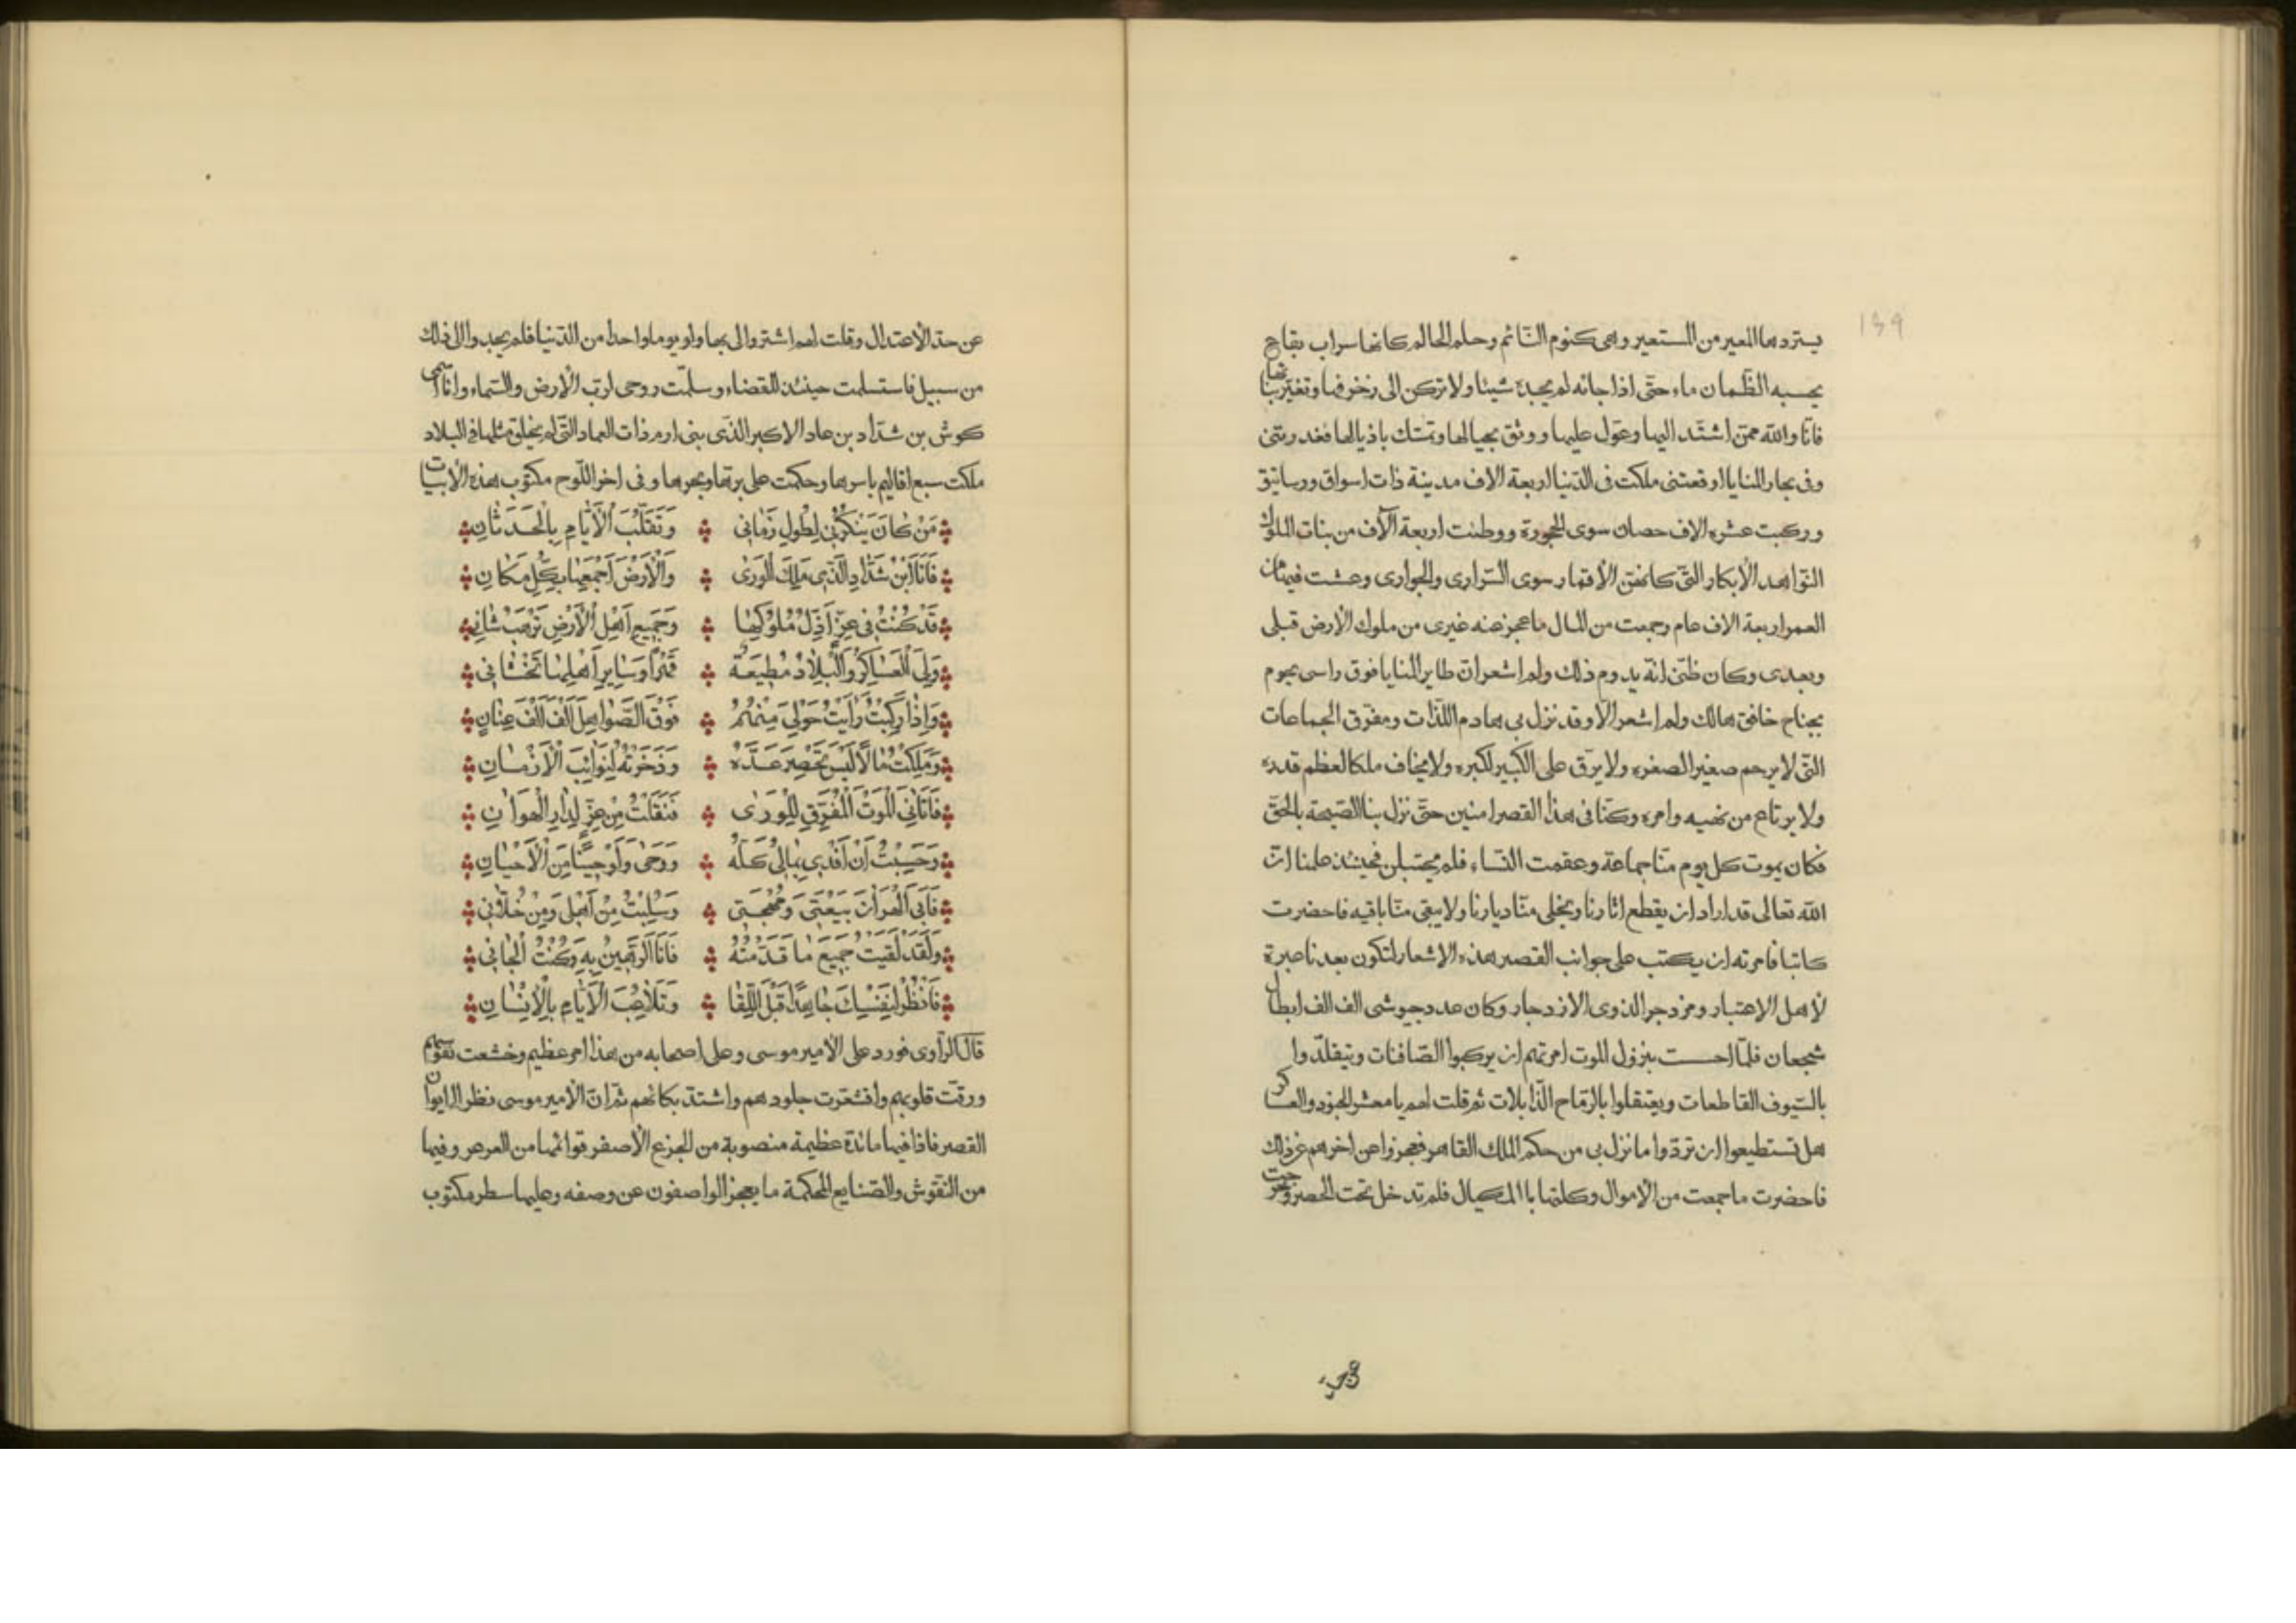 139
يستردها المعير من المستعير وهى كنوم النائم وحلم الحالم كانها سراب بقاع
يحسبه الظمان ماء حتى اذا جائه لم يجده شيئا ولا تركن الى زخرفها وتغير بنائها
فانا والله ممن اشتد اليها وعول عليها ووثق بحبالها وتمسك باذيالها فغدرتنى
وفى بحار المنايا اوقعتنى ملكت فى الدنيا اربعة الاف مدينة ذات اسواق ورساتيق
وركبت عشره الاف حصان سوى الحجورة ووطئت اربعة آلاف من بنات الملوك
النواهد الابكار التى كانهن الأقمار سوى السرارى والجوارى وعشت فيها من
العمر اربعة الاف عام وجمعت من المال ما عجز عنه غيرى من ملوك الأرض قبلى
وبعدى وكان ظنى انه يدوم ذلك ولم اشعر ان طاير المنايا فوق راسى يحوم
بجناح خافق هالك ولم اشعر الا وقد نزل بى هادم اللذات ومفرق الجماعات
التى لا يرحم صغير الصغره ولا يرق على الكبير لكبره ولا يخاف ملكا لعظم قدره
ولا يرتاع من نهيه وامره وكنا فى هذا القصر امنين حتى نزل بنا الصيحة بالحق
فكان يموت كل يوم منا جماعة وعقمت النساء فلم يحتبلن فحينئذ علمنا ان
الله تعالى قد اراد ان يقطع اثارنا ويخلى منا ديارنا ولا يبقى منا باقيه فاحضرت
كاتبا فامرته ان يكتب على جوانب القصر هذه الاشعار لتكون بعدنا عبرة
لأهل الاعتبار ومزدجر الذوى الازدجار وكان عدد جيوشى الف الف ابطال
شجعان فلما احست بنزول الموت امرتهم ان يركبوا الصافنات ويتقلدوا
بالسيوف القاطعات ويعتقلوا بالرماح الذابلات ثم قلت لهم يا معشر الجنود والعساكر
هل تستطيعوا ان تردوا ما نزل بى من حكم الملك القاهر فعجزوا عن اخرهم عن ذلك
فاحضرت ما جمعت من الاموال وكلتها باالمكيال فلم تدخل تحت الحصر وخرجت
عن حد
عن حد الأعتدال وقلت لهم اشتروا لى بها ولو يوما واحدا من الدنيا فلم يجدوا الى ذلك
من سبيل فاستسلمت حينئذ للقضاء وسلمت روحى لرب الأرض والسماء وانا اسمى
كوش بن شداد بن عاد الاكبر الذى بنى ارم ذات العماد التى لم يخلق مثلها فى البلاد
ملكت سبع اقاليم باسرها وحكمت على برها وبحرها وفى اخر اللوح مكتوب هذه الأبيات
مَن كانَ يَنكُرُنى لِطُولِ زَمانى وَتَقَلُّبَ الأَيّامِ بِالحَدَثانِ
فَانَا ابْنُ شَدّادِ الَّذى مَلِكَ الوَرى وَالأَرضَ أَجْمَعِها بِكُلِّ مَكانِ
قَد كُنْتُ فى عِزٍّ أَذِلُّ مُلُوكَها وَجَميع اَهلِ الأَرضِ تَرْهَبُ شانى
وَلِىَ العَساكِرُ وَالبِلادُ مُطيعَةٌ قَهْراً وَسايِر أَهلِها تَخشانى
وَاِذا رَكِبْتُ رَأيتُ حَولِىَ مِنهُمُ فَوقَ الصَّواهِلِ اَلْفَ اَلْفَ عِنانِ
وَمَلِكتُ مالاً لَيسَ تُحْصِرُ عَدَّهُ وَذَخَرْتُهُ لِنَوائِبَ الأَزمانِ
فَاَتانِىَ المَوتُ المُفَرِّقِ لِلوَرى فَنَقَلتُ مِن عِزٍّ لِدارِ الهَوانِ
وَحَسِبْتُ أَن اَفْدِى بِمالى كُلَّهُ رَوحى وَلَو حِيناً مِنَ الأَحيانِ
فَاَبى القُرآنَ بَيعَتى وَمُهجَتى وَسُلِبْتُ مِنْ اَهلى وَمِن خُلّانى
وَلَقَد لَقيتُ جَميعَ ما قَدَّمتُهُ فَاَنا الرَّهينُ بِهِ وَكُنتُ الجانى
فَانظُر لِنَفْسِكَ جاهِداً قَبلَ اللِّقا وَتَلاعُبَ الأَيّامِ بِالإِنسانِ
قال الراوى فورد على الأمير موسى وعلى اصحابه من هذا امر عظيم وخشعت نفوسهم
ورقت قلوبهم واقشعرت جلودهم واشتد بكائهم ثم ان الأمير موسى نظر الى ايوان
القصر فاذا فيها مائدة عظيمة منصوبة من الجزع الأصفر قوائمها من العرعر وفيها
من النقوش والصنايع المحكمة ما يعجز الواصفون عن وصفه وعليها سطر مكتوب